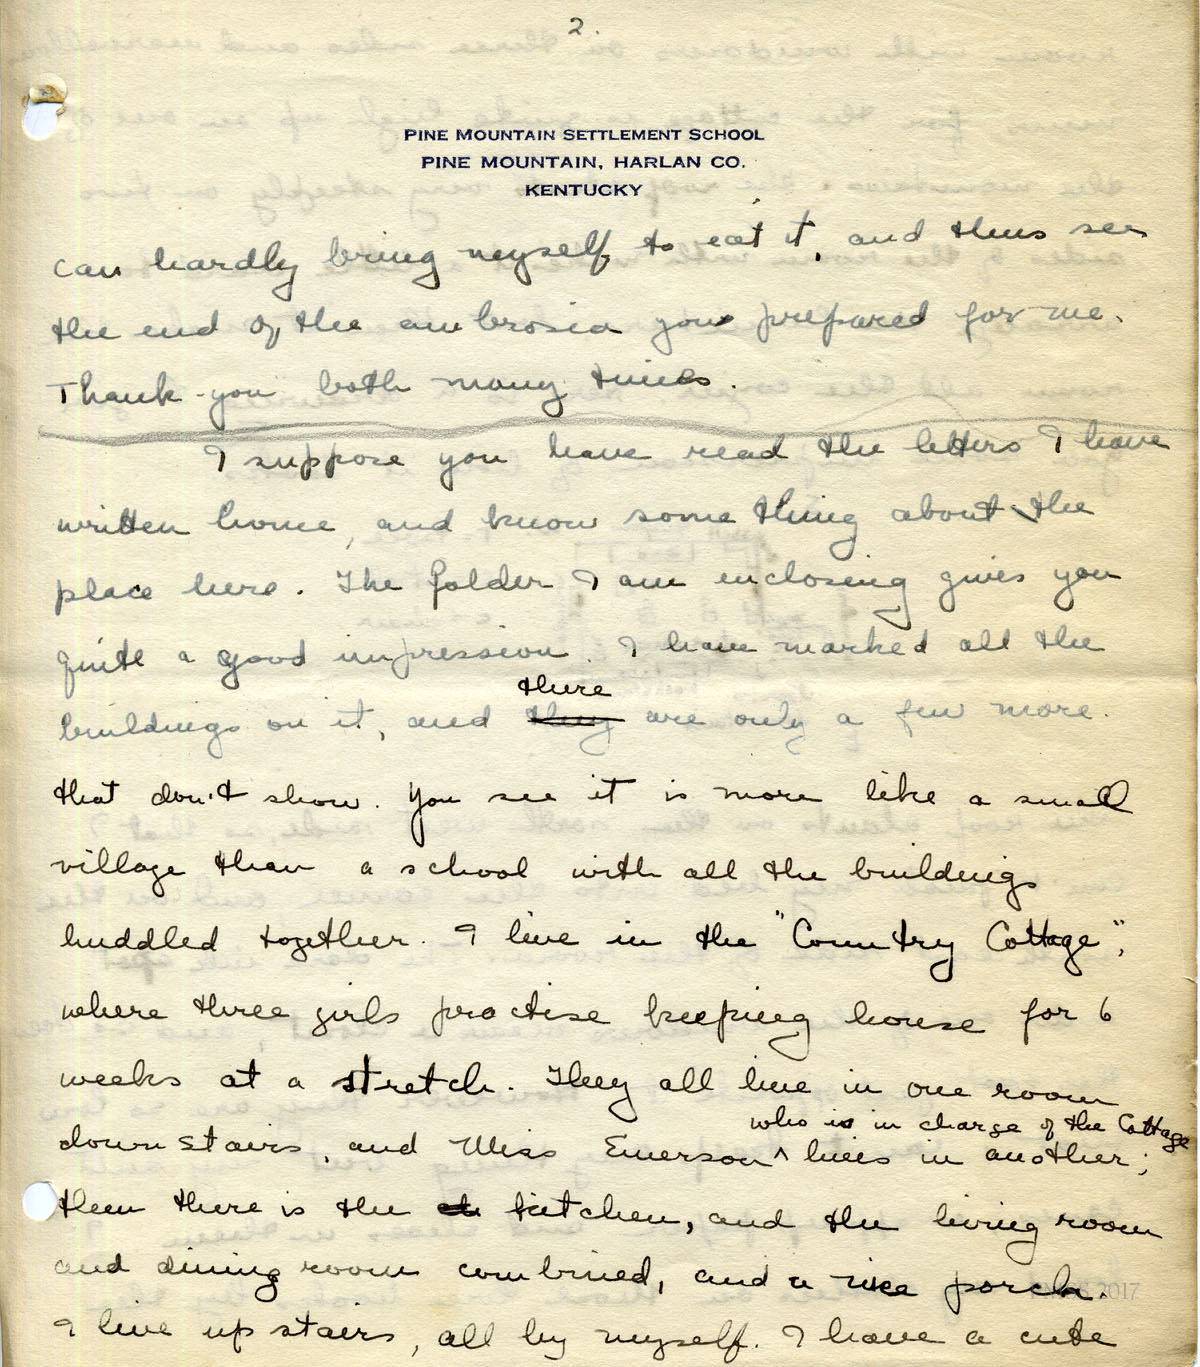 2.
PINE MOUNTAIN SETTLEMENT SCHOOL
PINE MOUNTAIN, HARLAN CO.
KENTUCKY
can hardly bring myself to eat it, and thus see
the end of the ambrosia you prepared for me.
Thank-you both many times.
I suppose you have read the letters I have
written home, and know some thing about the
place here. The folder I am enclosing gives you
quite a good impression. I have marked all the
there
buildings on it, and they are only a few more.
that don't show. You see it is more like a small
village than a school with all the buildings
huddled together. I live in the "Country Cottage",
where three girls practise keeping house for 6
weeks at a stretch. They all live in one room
who is in charge of the Cottage
down stairs, and Miss Emerson ^ lives in another;
then there is the kitchen, and the living room
and dining room combined, and a nice porch.
I live up stairs, all by myself. I have a cute
2017